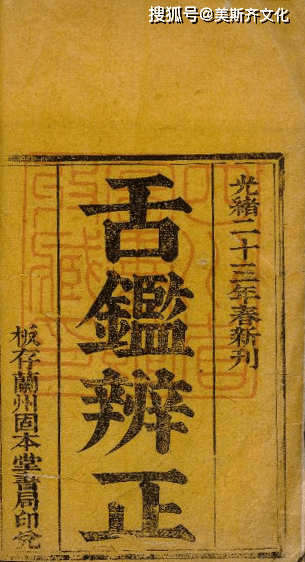 搜狐号@美斯齐文化
光緒二十三年春新刊
舌鑑辨正
板存蘭州固本堂書局印兌